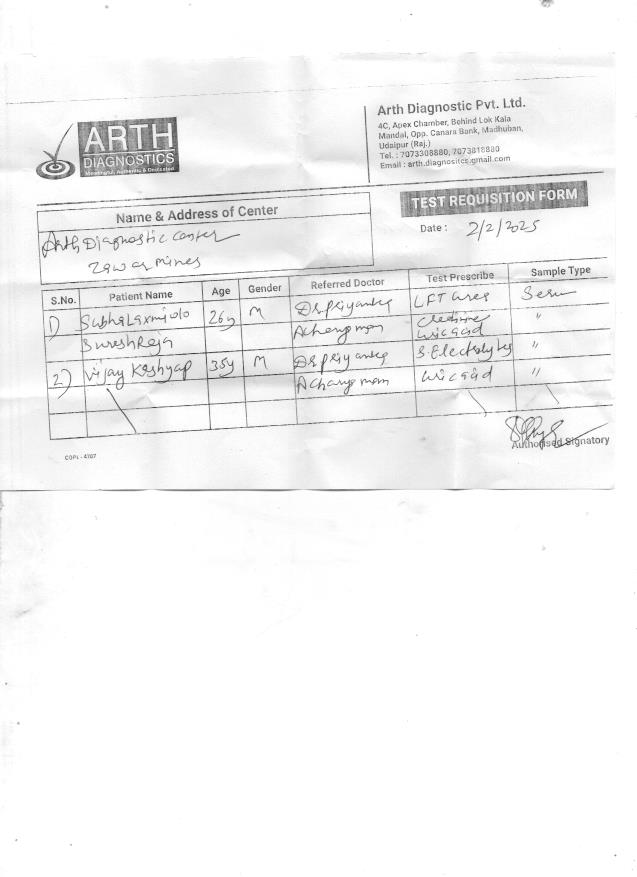 ARTH
DIAGNOSTICS
Meaningful, Authentic & Dedicated
Arth Diagnostic Pvt. Ltd.
4C, Apex Chamber, Behind Lok Kala
Mandal, Opp. Canara Bank, Madhuban,
Udaipur (Raj.)
Tel. : 7073308880, 7073818880
Email : arth.diagnositcs.gmail.com
TEST REQUISITION FORM
Name & Address of Center
Date : 2/2/2025
Arth Diagnostic Center
Zawar Mines
S.No. Patient Name Age Gender Referred Doctor Test Prescribe Sample Type
1) Subhalaxmi 26y M Dr Priyanka LFT Urea
Suresh Raja Creatinine
Uric Acid "
2) Vijay Kashyap 35y M Dr Priyanka S. Electrolytes "
Uric Acid "
Authorised Signatory
COPL-4707